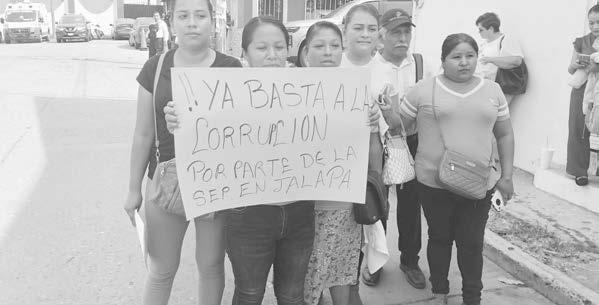 !! YA BASTA A LA
CORRUPCION
POR PARTE DE LA
SEP EN JALAPA